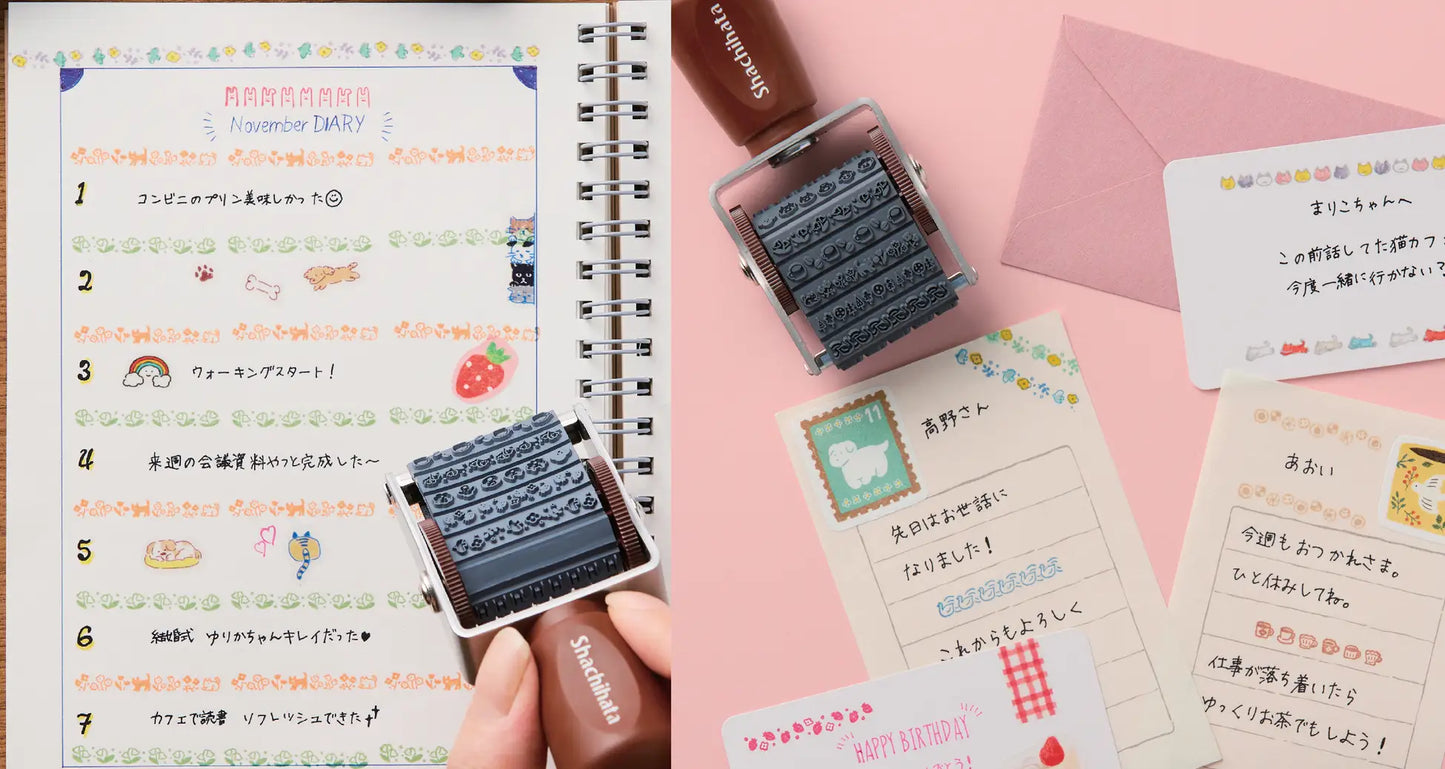 November DIARY
1 コンビニのプリン美味しかった
2
3 ウォーキングスタート!
4 来週の会議資料やっと完成した〜
5
6 結婚式 ゆりかちゃんキレイだった♥
7 カフェで読書 リフレッシュできた
Shachihata
Shachihata
まりこちゃんへ
この前話してた猫カフ
今度一緒に行かない?
11
高野さん
先日はお世話に
なりました!
これからもよろしく
HAPPY BIRTHDAY
あおい
今週もおつかれさま。
ひと休みしてね。
仕事が落ち着いたら
ゆっくりお茶でもしよう!